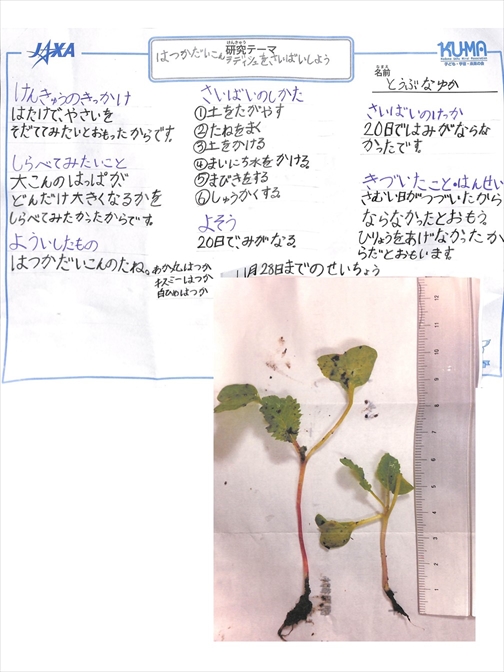 JAXA
けんきゅう
研究テーマ
はつかだいこん
ラディシュをさいばいしよう
KUMA
子ども・宇宙・未来の会
なまえ
名前
とうぶなゆか
けんきゅうのきっかけ
はたけで、やさいを
そだててみたいとおもったからです。
しらべてみたいこと
大こんのはっぱが、
どんだけ大きくなるかを
しらべてみたかったからです。
よういしたもの
はつかだいこんのたね。
あか丸はつか
キスミーはつか
白ひめはつか
さいばいのしかた
①土をたがやす
②たねをまく
③土をかける
④まいにち水をかける
⑤まびきをする
⑥しゅうかくする。
よそう
20日でみがなる
11月28日までのせいちょう
さいばいのけっか
20日ではみがならな
かったです。
きづいたこと・はんせい
さむい日がつづいたから
ならなかったとおもう。
ひりょうをあげなかったか
らだとおもいます
12
11
10
9
8
7
6
5
4
3
2
1